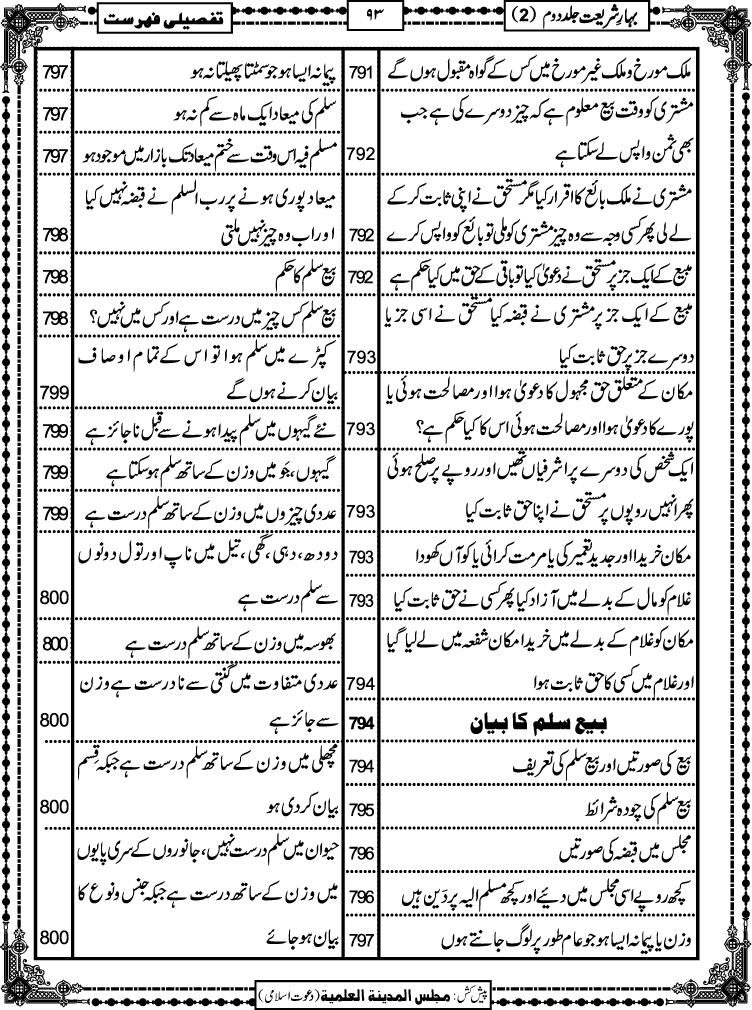 بہارِشریعت جلد دوم (2)
۹۳
تفصیلی فہرست
ملک مورخ و ملک غیر مورخ میں کس کے گواہ مقبول ہوں گے 791
مشتری کو وقت بیع معلوم ہے کہ چیز دوسرے کی ہے جب
بھی ثمن واپس لے سکتا ہے 792
مشتری نے ملک بائع کا اقرار کیا مگر مستحق نے اپنی ثابت کر کے
لے لی پھر کسی وجہ سے وہ چیز مشتری کو ملی تو بائع کو واپس کرے 792
مبیع کے ایک جز پر مستحق نے دعویٰ کیا تو باقی کے حق میں کیا حکم ہے 792
مبیع کے ایک جز پر مشتری نے قبضہ کیا مستحق نے اسی جز یا
دوسرے جز پر حق ثابت کیا 793
مکان کے متعلق حق مجہول کا دعویٰ ہوا اور مصالحت ہوئی یا
پورے کا دعویٰ ہوا اور مصالحت ہوئی اس کا کیا حکم ہے؟ 793
ایک شخص کی دوسرے پر اشرفیاں تھیں اور روپے پر صلح ہوئی
پھر انہیں روپوں پر مستحق نے اپنا حق ثابت کیا 793
مکان خریدا اور جدید تعمیر کی یا مرمت کرائی یا کوآں کھودا 793
غلام کو مال کے بدلے میں آزاد کیا پھر کسی نے حق ثابت کیا 793
مکان کو غلام کے بدلے میں خریدا مکان شفعہ میں لے لیا گیا
اور غلام میں کسی کا حق ثابت ہوا 794
بیع سلم کا بیان 794
بیع کی صورتیں اور بیع سلم کی تعریف 794
بیع سلم کی چودہ شرائط 795
مجلس میں قبضہ کی صورتیں 796
کچھ روپے اسی مجلس میں دیئے اور کچھ مسلم الیہ پر دَین ہیں 796
وزن یا پیمانہ ایسا ہو جو عام طور پر لوگ جانتے ہوں 797
پیمانہ ایسا ہو جو سمٹتا پھیلتا نہ ہو 797
سلم کی میعاد ایک ماہ سے کم نہ ہو 797
مسلم فیہ اس وقت سے ختم میعاد تک بازار میں موجود ہو 797
میعاد پوری ہونے پر رب السلم نے قبضہ نہیں کیا
اور اب وہ چیز نہیں ملتی 798
بیع سلم کا حکم 798
بیع سلم کس چیز میں درست ہے اور کس میں نہیں؟ 798
کپڑے میں سلم ہوا تو اس کے تمام اوصاف
بیان کرنے ہوں گے 799
نئے گیہوں میں سلم پیدا ہونے سے قبل ناجائز ہے 799
گیہوں، جَو میں وزن کے ساتھ سلم ہو سکتا ہے 799
عددی چیزوں میں وزن کے ساتھ سلم درست ہے 799
دودھ، دہی، گھی، تیل میں ناپ اور تول دونوں
سے سلم درست ہے 800
بھوسہ میں وزن کے ساتھ سلم درست ہے 800
عددی متفاوت میں گنتی سے نادرست ہے وزن
سے جائز ہے 800
مچھلی میں وزن کے ساتھ سلم درست ہے جبکہ قِسم
بیان کر دی ہو 800
حیوان میں سلم درست نہیں، جانوروں کے سری پایوں
میں وزن کے ساتھ درست ہے جبکہ جنس و نوع کا
بیان ہو جائے 800
پیش کش: مجلس المدینۃ العلمیۃ (دعوت اسلامی)